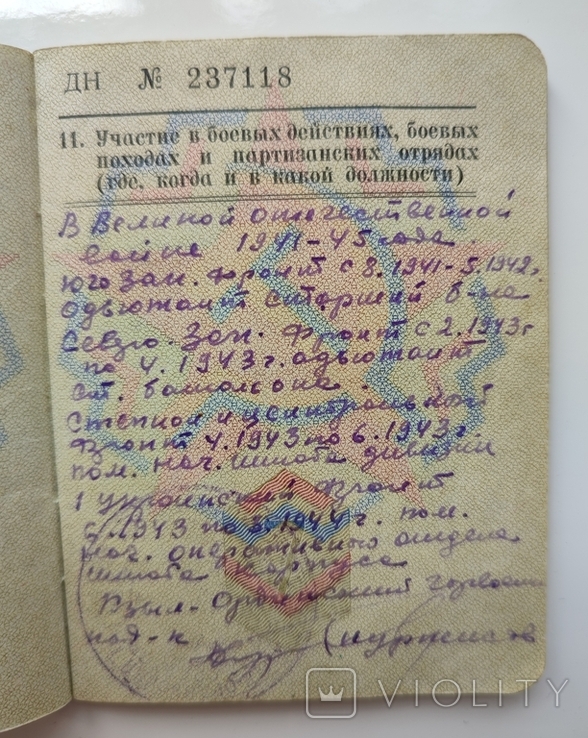 ДН № 237118
11. Участие в боевых действиях, боевых
походах и партизанских отрядах
(где, когда и в какой должности)
В Великой отечественной
войне 1941-45 года.
юго Зап. фронт с 8.1941-5.1942г
адъютант старший б-на
Северо. Зап. фронт с 2.1943г
по 4.1943г. адъютант
ст. батальона.
Степной и центральный
фронт 4.1943 по 6.1943г
пом. нач. штаба дивизии
1 украинский фронт
6.1943 по 8.1944г. пом.
нач. оперативного отдела
штаба корпуса
Кзыл-Ординский
нач-к
VIOLITY